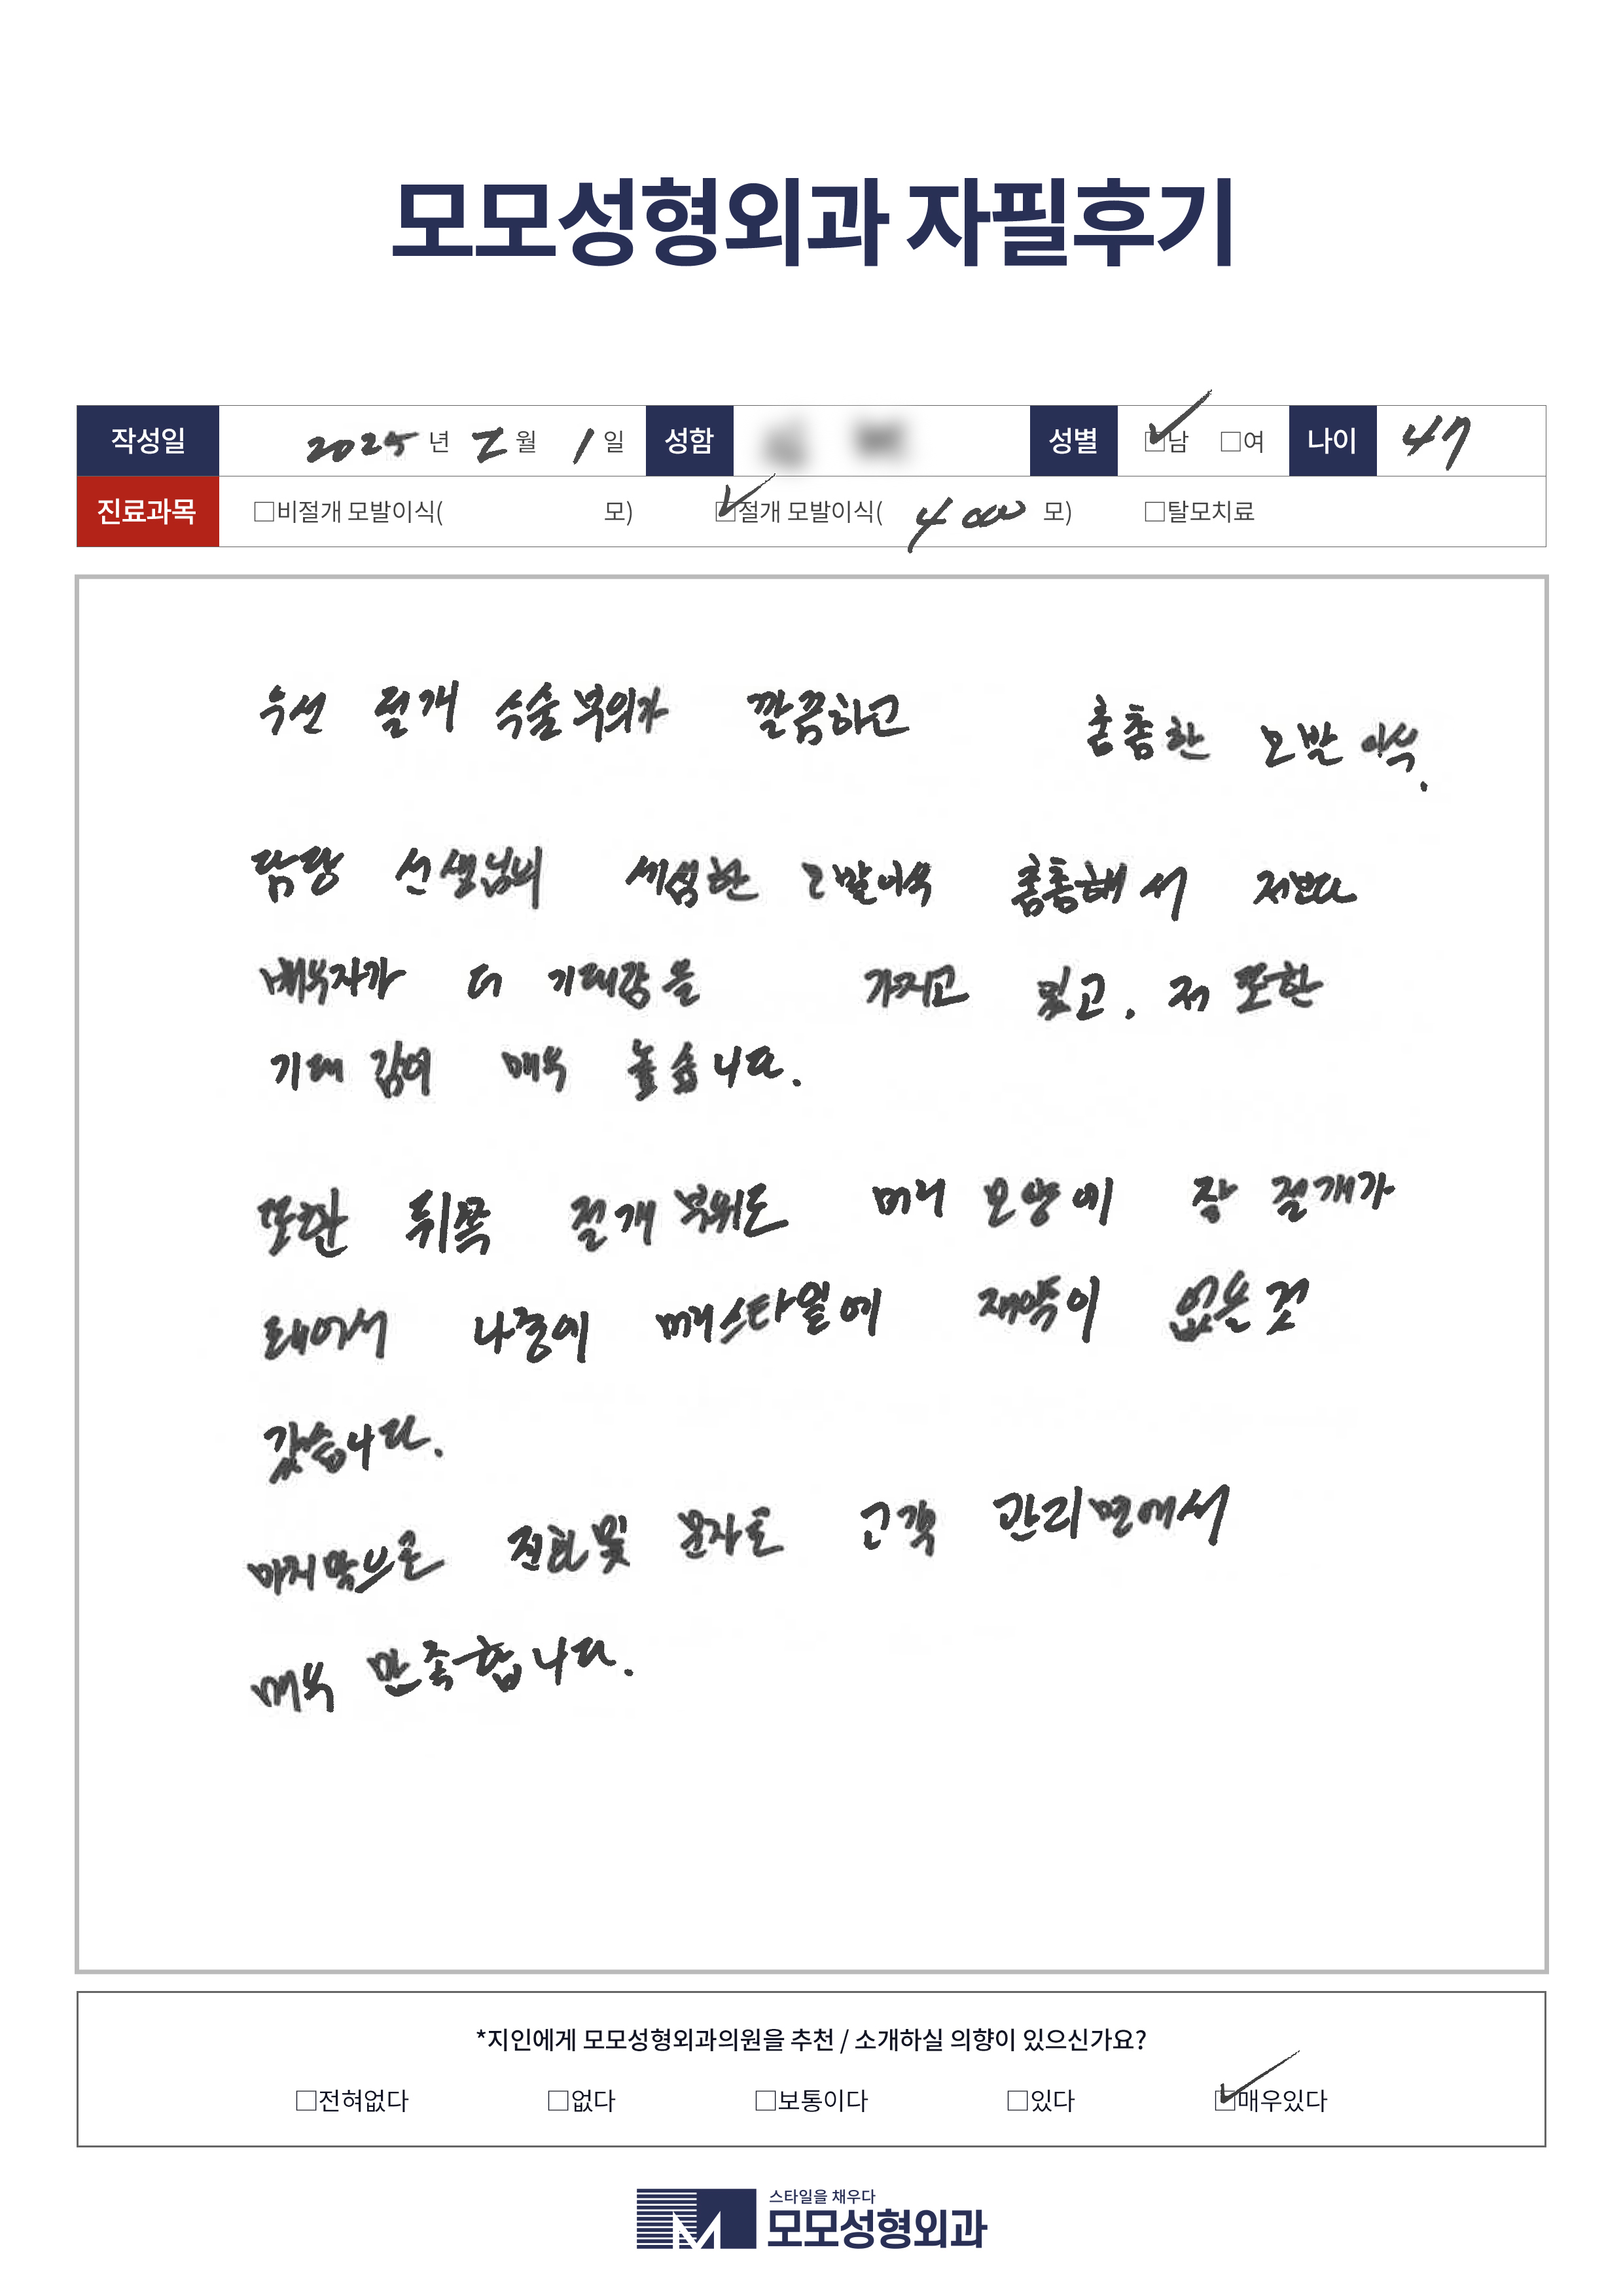 모모성형외과 자필후기
작성일 2025년 2월 1일 성함 성별 ☑남 □여 나이 47
진료과목 □비절개 모발이식( 모) ☑절개 모발이식( 4000 모) □탈모치료
우선 절개 수술부의가 깔끔하고 촘촘한 모발이식.
담당 선생님의 세심한 모발이식 촘촘해서 저보다
배우자가 더 기대감을 가지고 있고. 저 또한
기대감이 매우 높습니다.
또한 뒤쪽 절개부위도 머리 모양에 잘 절개가
되어서 나중에 헤어스타일에 제약이 없는 것
같습니다.
마지막으로 전화 및 문자도 고객 관리면에서
매우 만족합니다.
*지인에게 모모성형외과의원을 추천 / 소개하실 의향이 있으신가요?
□전혀없다 □없다 □보통이다 □있다 ☑매우있다
스타일을 채우다
모모성형외과